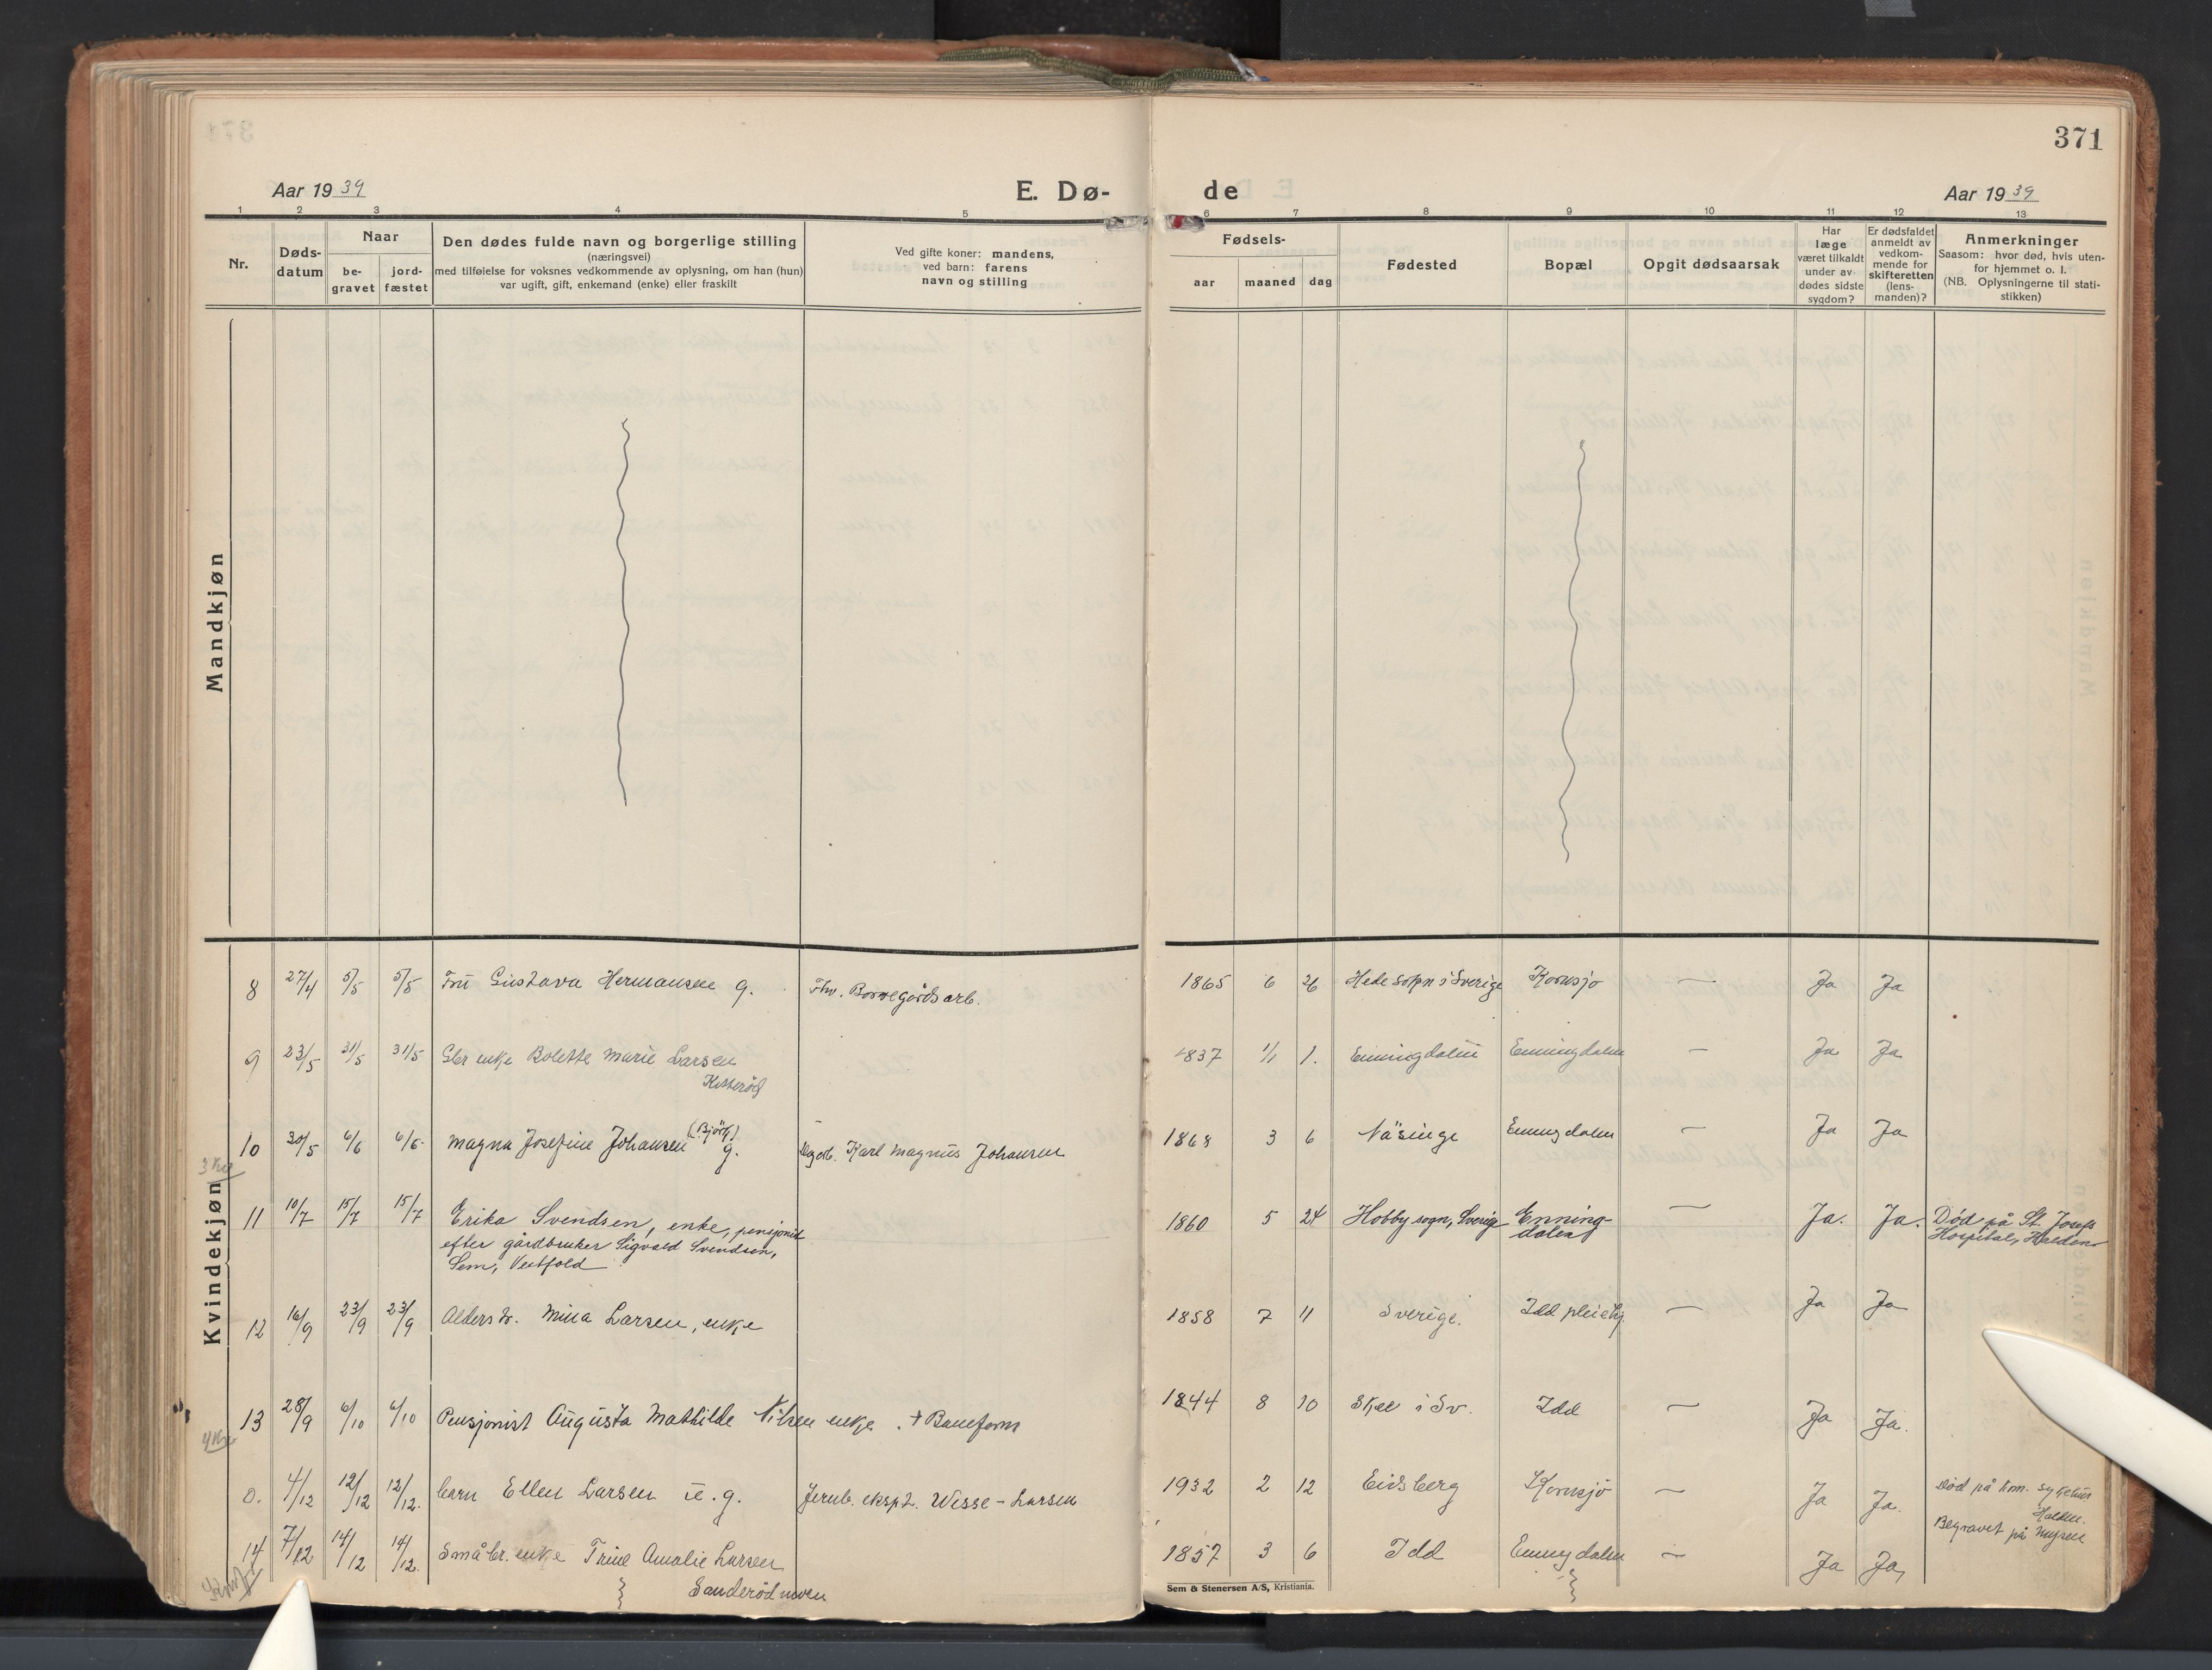 371
Aar 1939 E. Dø- de Aar 1939
1 2 3 4 5 6 7 8 9 10 11 12 13
Nr.
Døds-
datum
Naar
be-
gravet
jord-
fæstet
Den dødes fulde navn og borgerlige stilling
(næringsvei)
med tilføielse for voksnes vedkommende av oplysning, om han (hun)
var ugift, gift, enkemand (enke) eller fraskilt
Ved gifte koner: mandens,
ved barn: farens
navn og stilling
Fødsels-
aar maaned dag
Fødested
Bopæl
Opgit dødsaarsak
Har
læge
været tilkaldt
under av-
dødes sidste
sygdom?
Er dødsfaldet
anmeldt av
vedkom-
mende for
skifteretten
(lens-
manden)?
Anmerkninger
Saasom: hvor død, hvis uten-
for hjemmet o. l.
(NB. Oplysningerne til stati-
stikken)
Mandkjøn
Kvindekjøn
8 27/4 5/5 5/5 Frü Güstava Hermansen g. Fhv. Borregårdsarb. 1865 6 26 Hede sokn i Sverige Kornsjø — Ja Ja
9 23/5 31/5 31/5 Gbr enke Bolette Marie Larsen 1837 1/1 1. Enningdalen Enningdalen — Ja Ja
Kisterød
10 30/5 6/6 6/6 Magna Josefine Johansen (Björk) g. Karl Magnüs Johansen 1868 3 6 Näsinge Enningdalen — Ja Ja
11 10/7 15/7 15/7 Erika Svendsen, enke, pensjonist 1860 5 24 Hobby sogn, Sverige Enning- — Ja. Ja. Død på St. Josefs
efter gårdbruker Sigvald Svendsen, dalen Hospital, Halden
Sem, Vestfold
12 16/9 23/9 23/9 Alders tr. Mina Larsen, enke 1858 7 11 Sverige. Idd pleiehj — Ja Ja
13 28/9 6/10 6/10 Pensjonist Aügüsta Mathilde Nilsen enke . + Baneform 1844 8 10 Skee i Sv. Idd — Ja Ja.
0. 4/12 12/12 12/12. barn Ellen Larsen ü. g. Jernb. eksp. Wisse-Larsen 1932 2 12 Eidsberg Kornsjø — Ja Ja. Død på kom. sykehüs
Halden.
Begravet på Mysen
14 7/12 14/12 14/12. Småbr. enke Trine Amalie Larsen 1857 3 6 Idd Enningdalen — Ja Ja,
Sanderödmoen
Sem & Stenersen A/S, Kristiania.